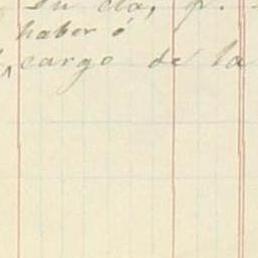 Su cta, p.
haber ó
cargo de la